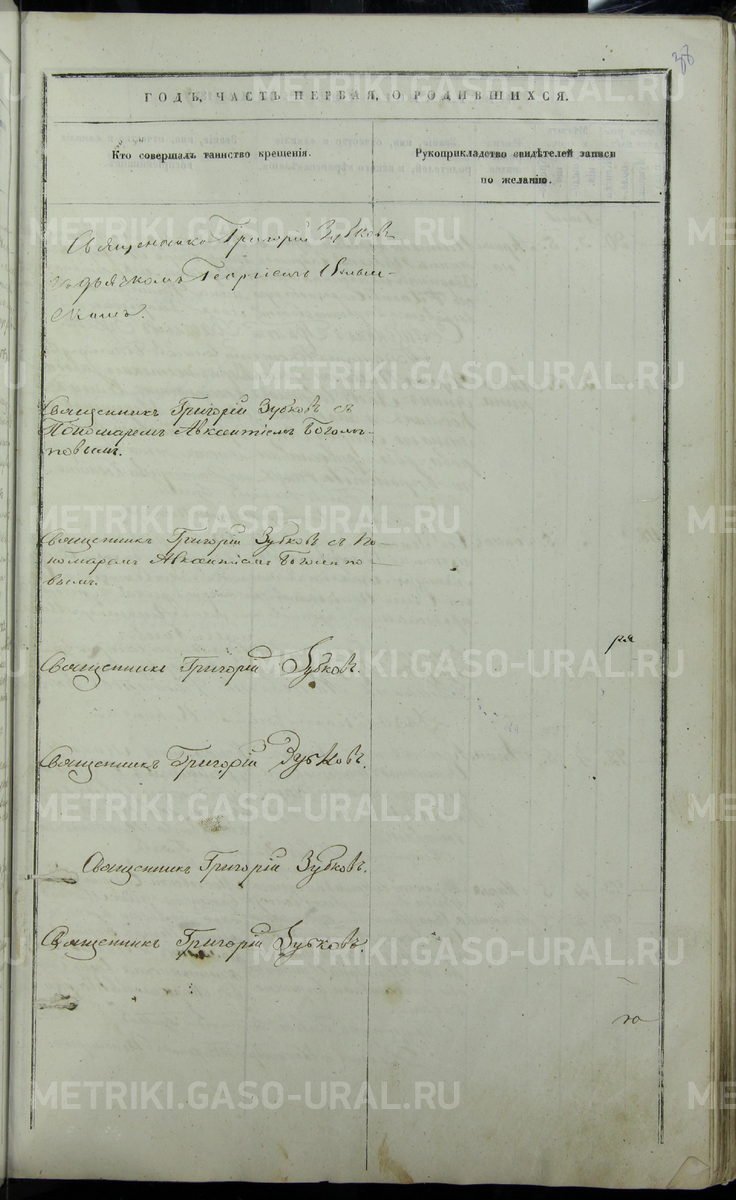 ГОДЪ, ЧАСТЬ ПЕРВАЯ, О РОДИВШИХСЯ.
Кто совершалъ таинство крещенія.
Рукоприкладство свидѣтелей записи
по желанію.
Священникъ Григорій Зубковъ
съ дьячкомъ Георгіемъ
Священникъ Григорій Зубковъ съ
Пономаремъ Авксентіемъ Богом-
повымъ.
Священникъ Григорій Зубковъ съ По-
номаремъ Авксентіемъ
вымъ.
Священникъ Григорій Зубковъ.
Священникъ Григорій Зубковъ.
Священникъ Григорій Зубковъ.
Священникъ Григорій Зубковъ.
METRIKI.GASO-URAL.RU